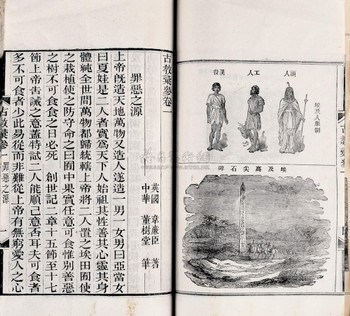 古教彙參卷一
罪惡之源
英國 韋廉臣 著
中華 董樹堂 筆
上帝旣造天地萬物又造人遂造一男一女男曰亞當女
曰夏娃是二人者實爲天下人始祖其性善其心靈其身
體純全世間萬物都歸統轄上帝將二人置之埃田囿使
之栽植使之防守命之曰囿中果實任意可食惟別善惡
之樹不可食食之日必死 創世記二章十五節至十七
節上帝告誡之意蓋特試二人能順己意否耳夫可食者
多不可食者少此易從而非難從上帝有無窮愛人之心
古教彙參 卷一 罪惡之源
兵人
工人
埃及高尖石碑